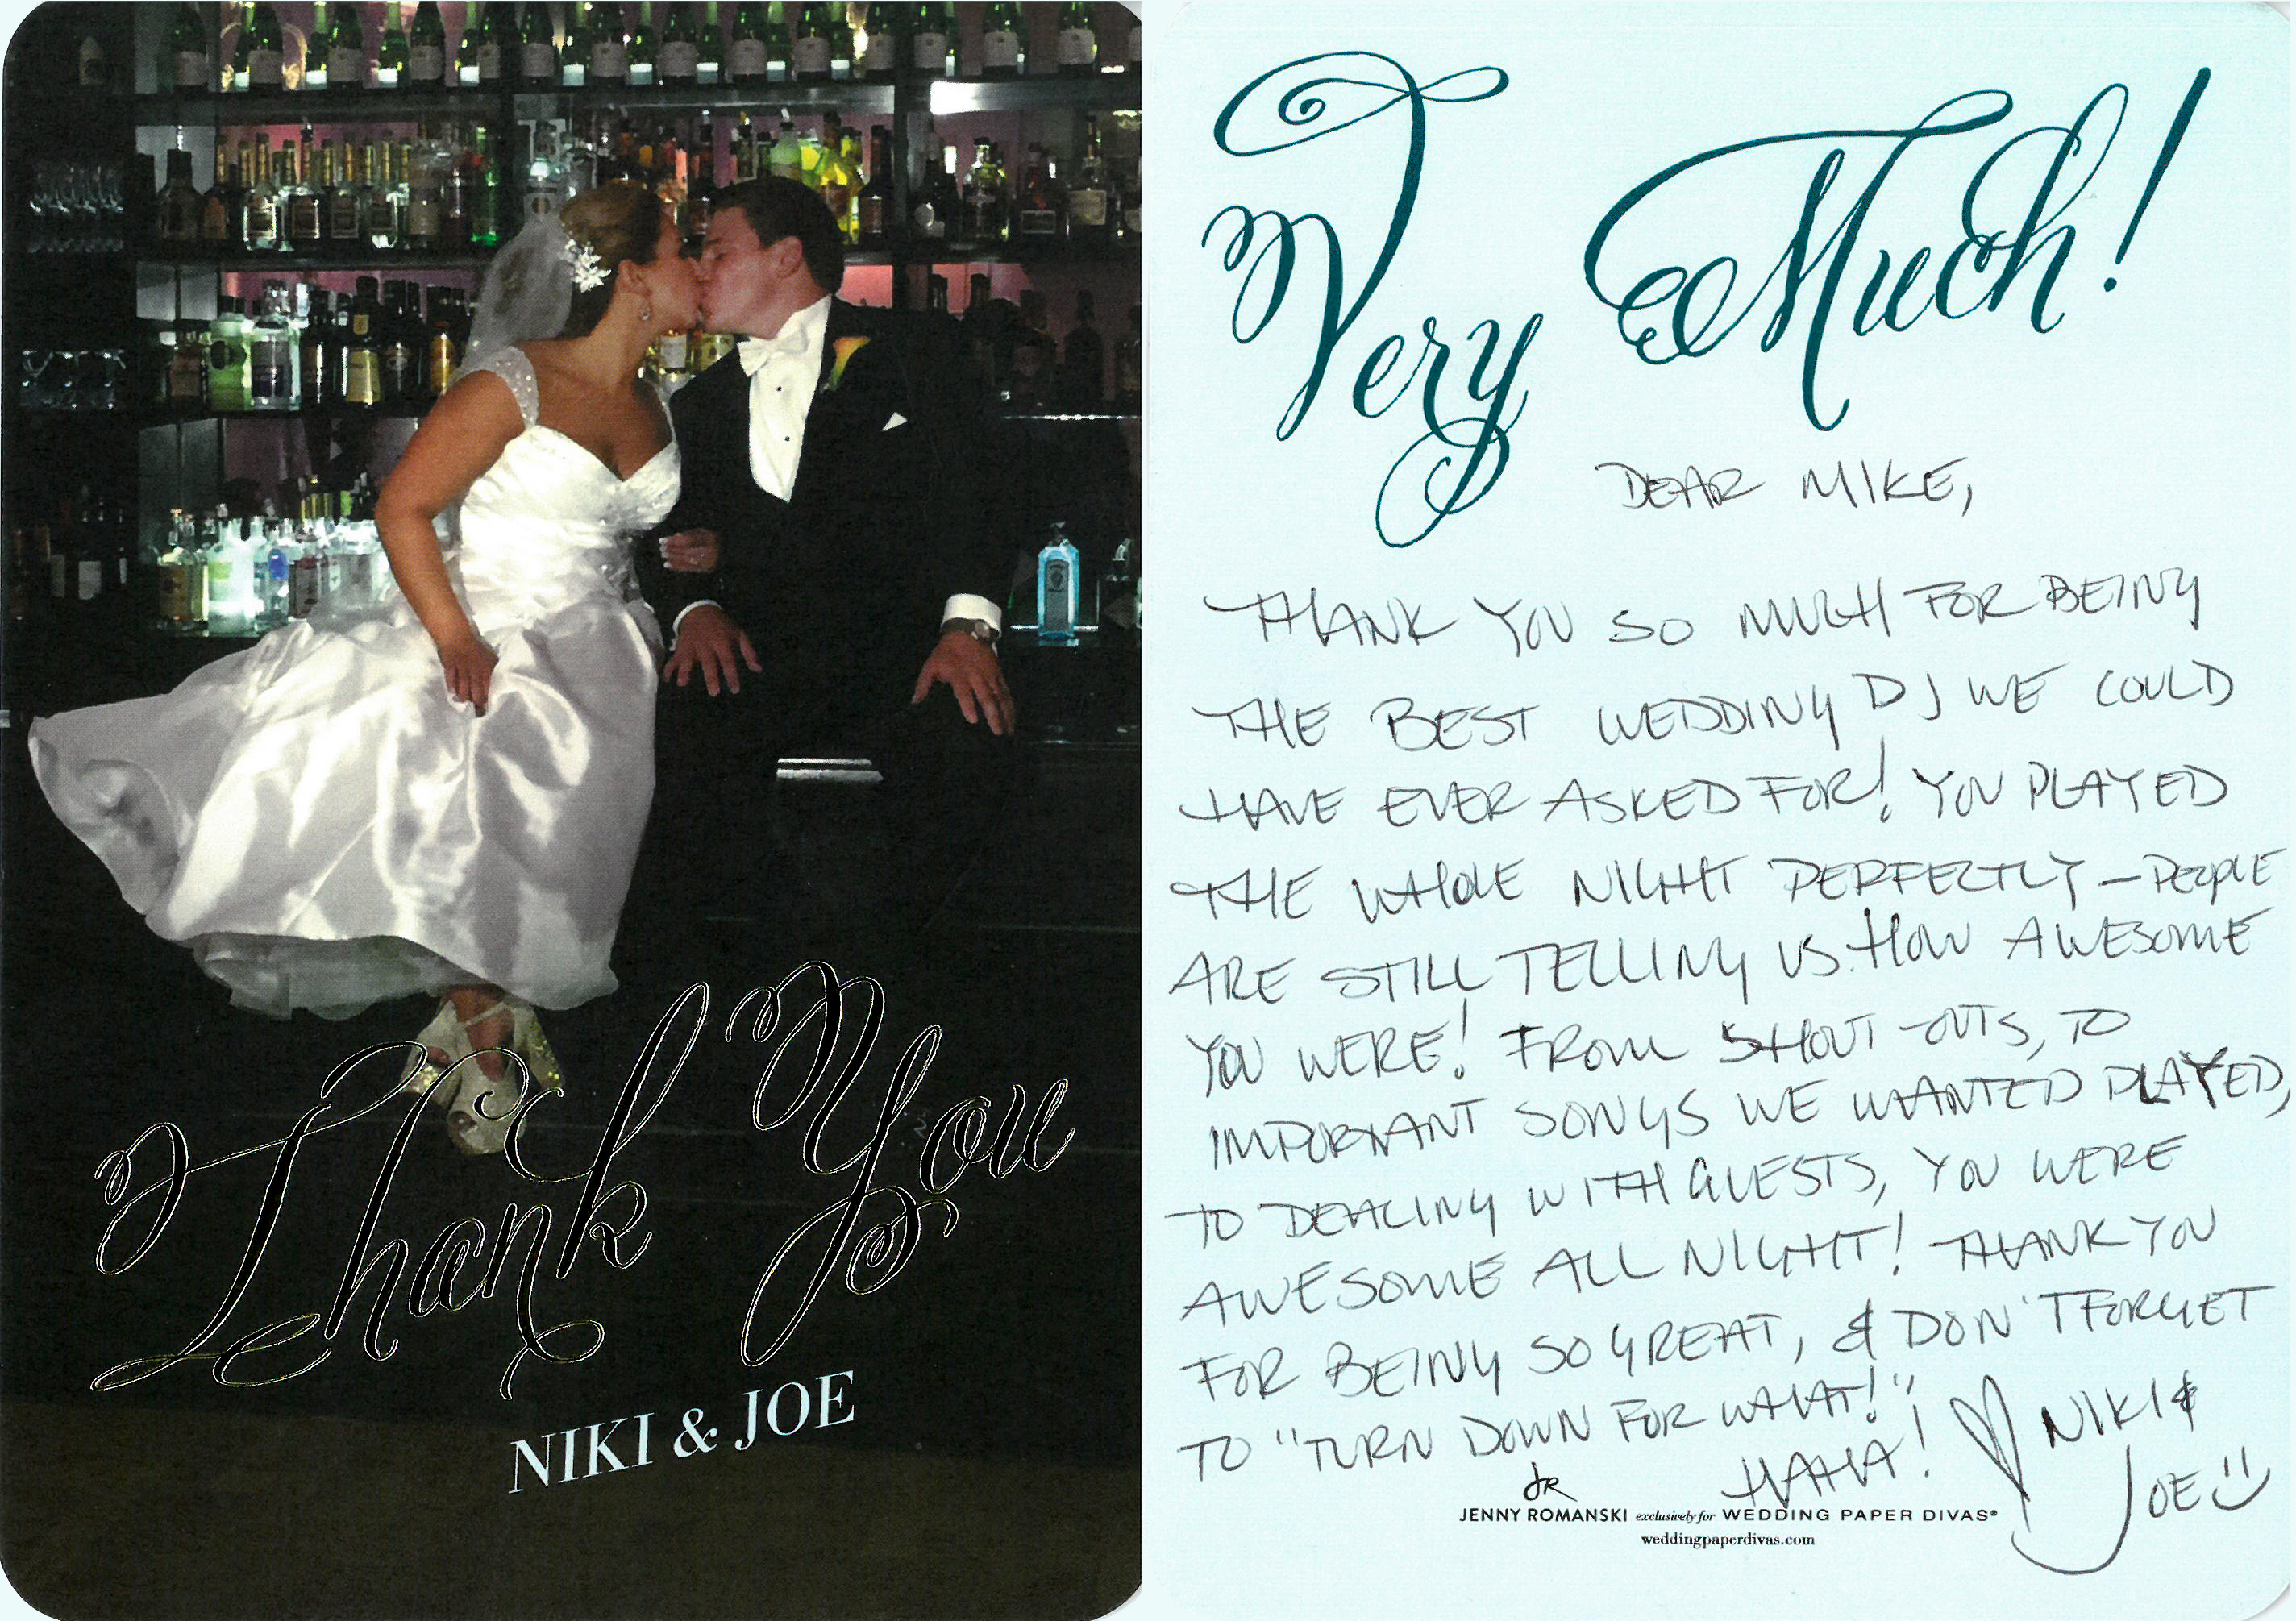 Thank You
NIKI & JOE
Very Much!
DEAR MIKE,
THANK YOU SO MUCH FOR BEING
THE BEST WEDDING DJ WE COULD
HAVE EVER ASKED FOR! YOU PLAYED
THE WHOLE NIGHT PERFECTLY – PEOPLE
ARE STILL TELLING US HOW AWESOME
YOU WERE! FROM SHOUT-OUTS, TO
IMPORTANT SONGS WE WANTED PLAYED,
TO DEALING WITH GUESTS, YOU WERE
AWESOME ALL NIGHT! THANK YOU
FOR BEING SO GREAT, & DON'T FORGET
TO "TURN DOWN FOR WHAT!"
HAHA! ♡ NIKI &
JOE :)
JR
JENNY ROMANSKI exclusively for WEDDING PAPER DIVAS®
weddingpaperdivas.com